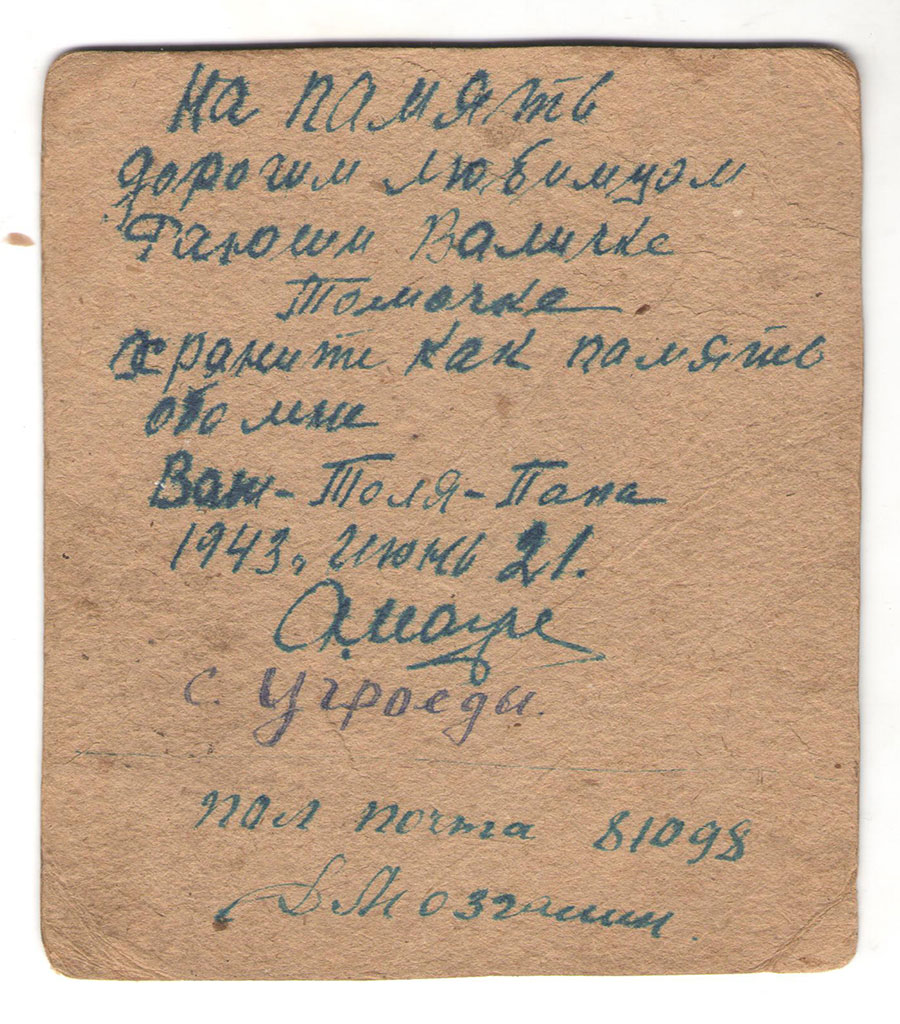 На память
дорогим любимцам
Ганюшки Валичке
Томочке
храните как память
обо мне
Ваш-Толя-Папа
1943. Июнь 21.
с. Угроеды.
пол почта 81098